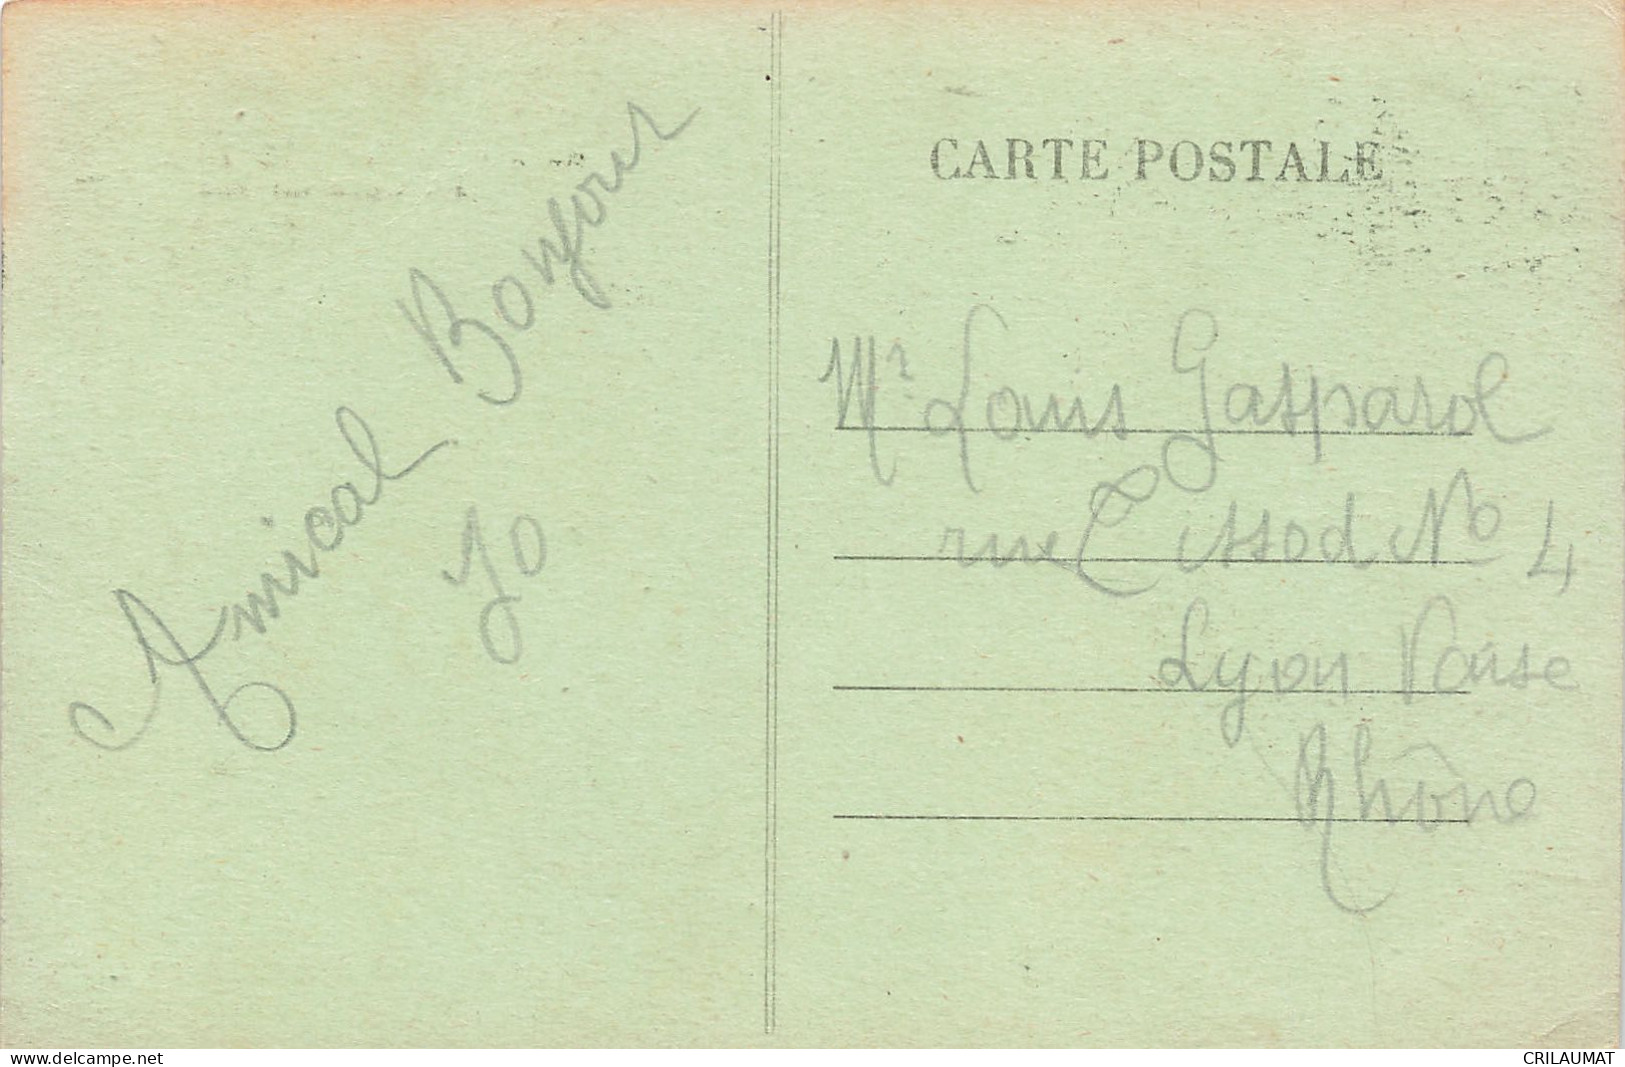 Amical Bonjour
Jo
CARTE POSTALE
Mr Louis Gaspard
rue Tissod No 4
Lyon Vaise
Rhône
www.delcampe.net
CRILAUMAT